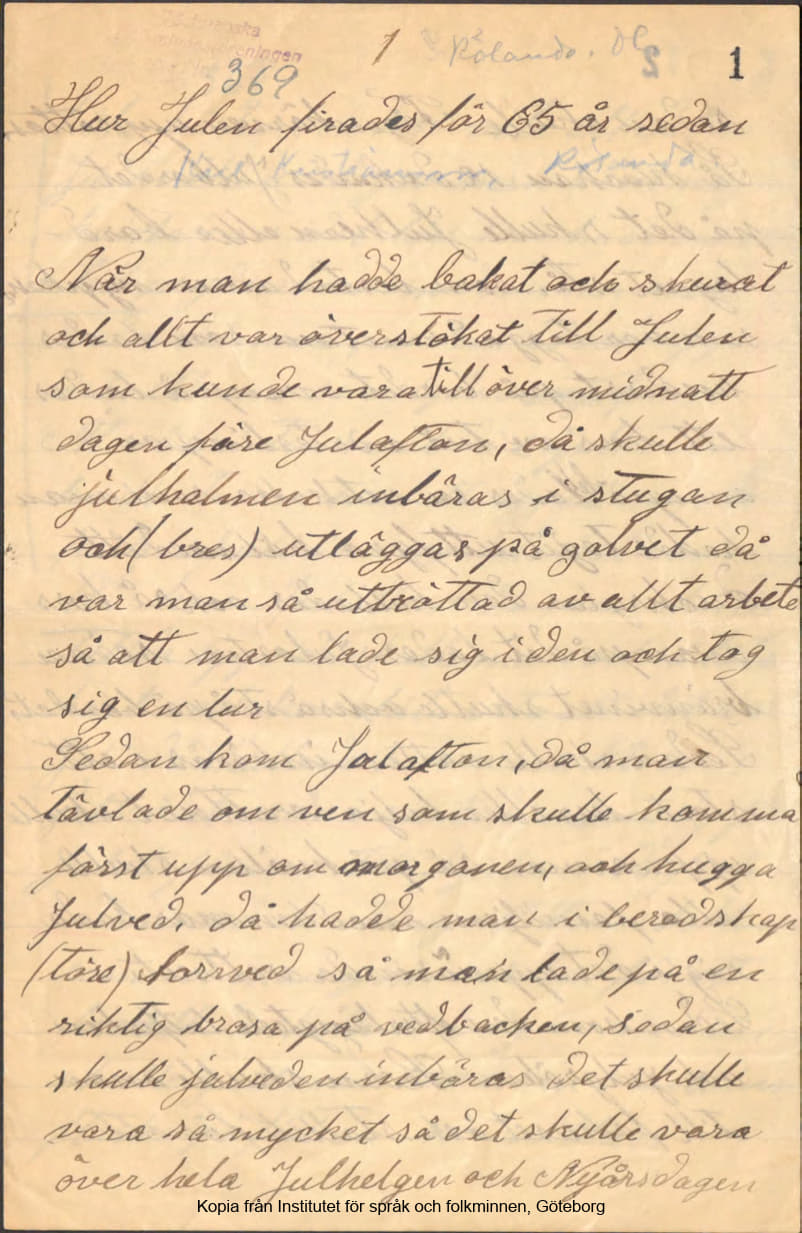 1
Rolands. Dl
1
369
Hur Julen firades för 65 år sedan
Rölanda
När man hadde bakat och skurat
och allt var överstökat till Julen
som kunde vara till över midnatt
dagen före Julafton, då skulle
julhalmen inbäras i stugan
och (bres) utläggas på golvet då
var man så uttröttad av allt arbete
så att man lade sig i den och tog
sig en lur
Sedan kom Julafton, då man
tävlade om ven som skulle komma
först upp om morgonen, och hugga
Julved. då hadde man i beredskap
(töre) torrved så man lade på en
riktig brasa på vedbacken, sedan
skulle julveden inbäras det skulle
vara så mycket så det skulle vara
över hela Julhelgen och Nyårsdagen
Kopia från Institutet för språk och folkminnen, Göteborg